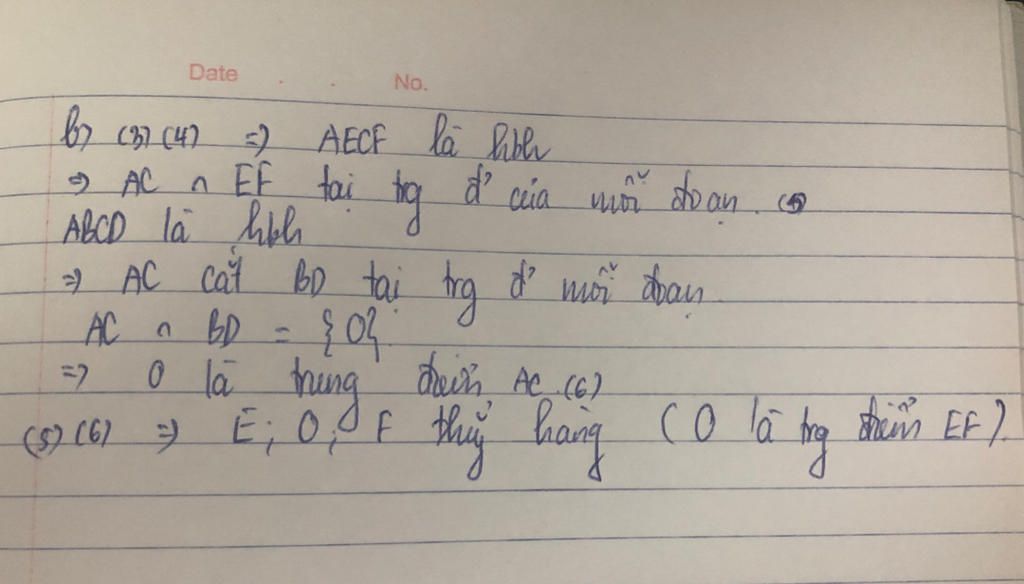 Date . . No.
b) (3) (4) => AECF là hbh
=> AC ∩ EF tại trg đ' của mỗi đoạn. (5)
ABCD là hbh
=> AC cắt BD tại trg đ' mỗi đoạn
AC ∩ BD = {O}.
=> O là trung điểm AC. (6)
(5) (6) => E; O; F thẳg hàng (O là trg điểm EF).